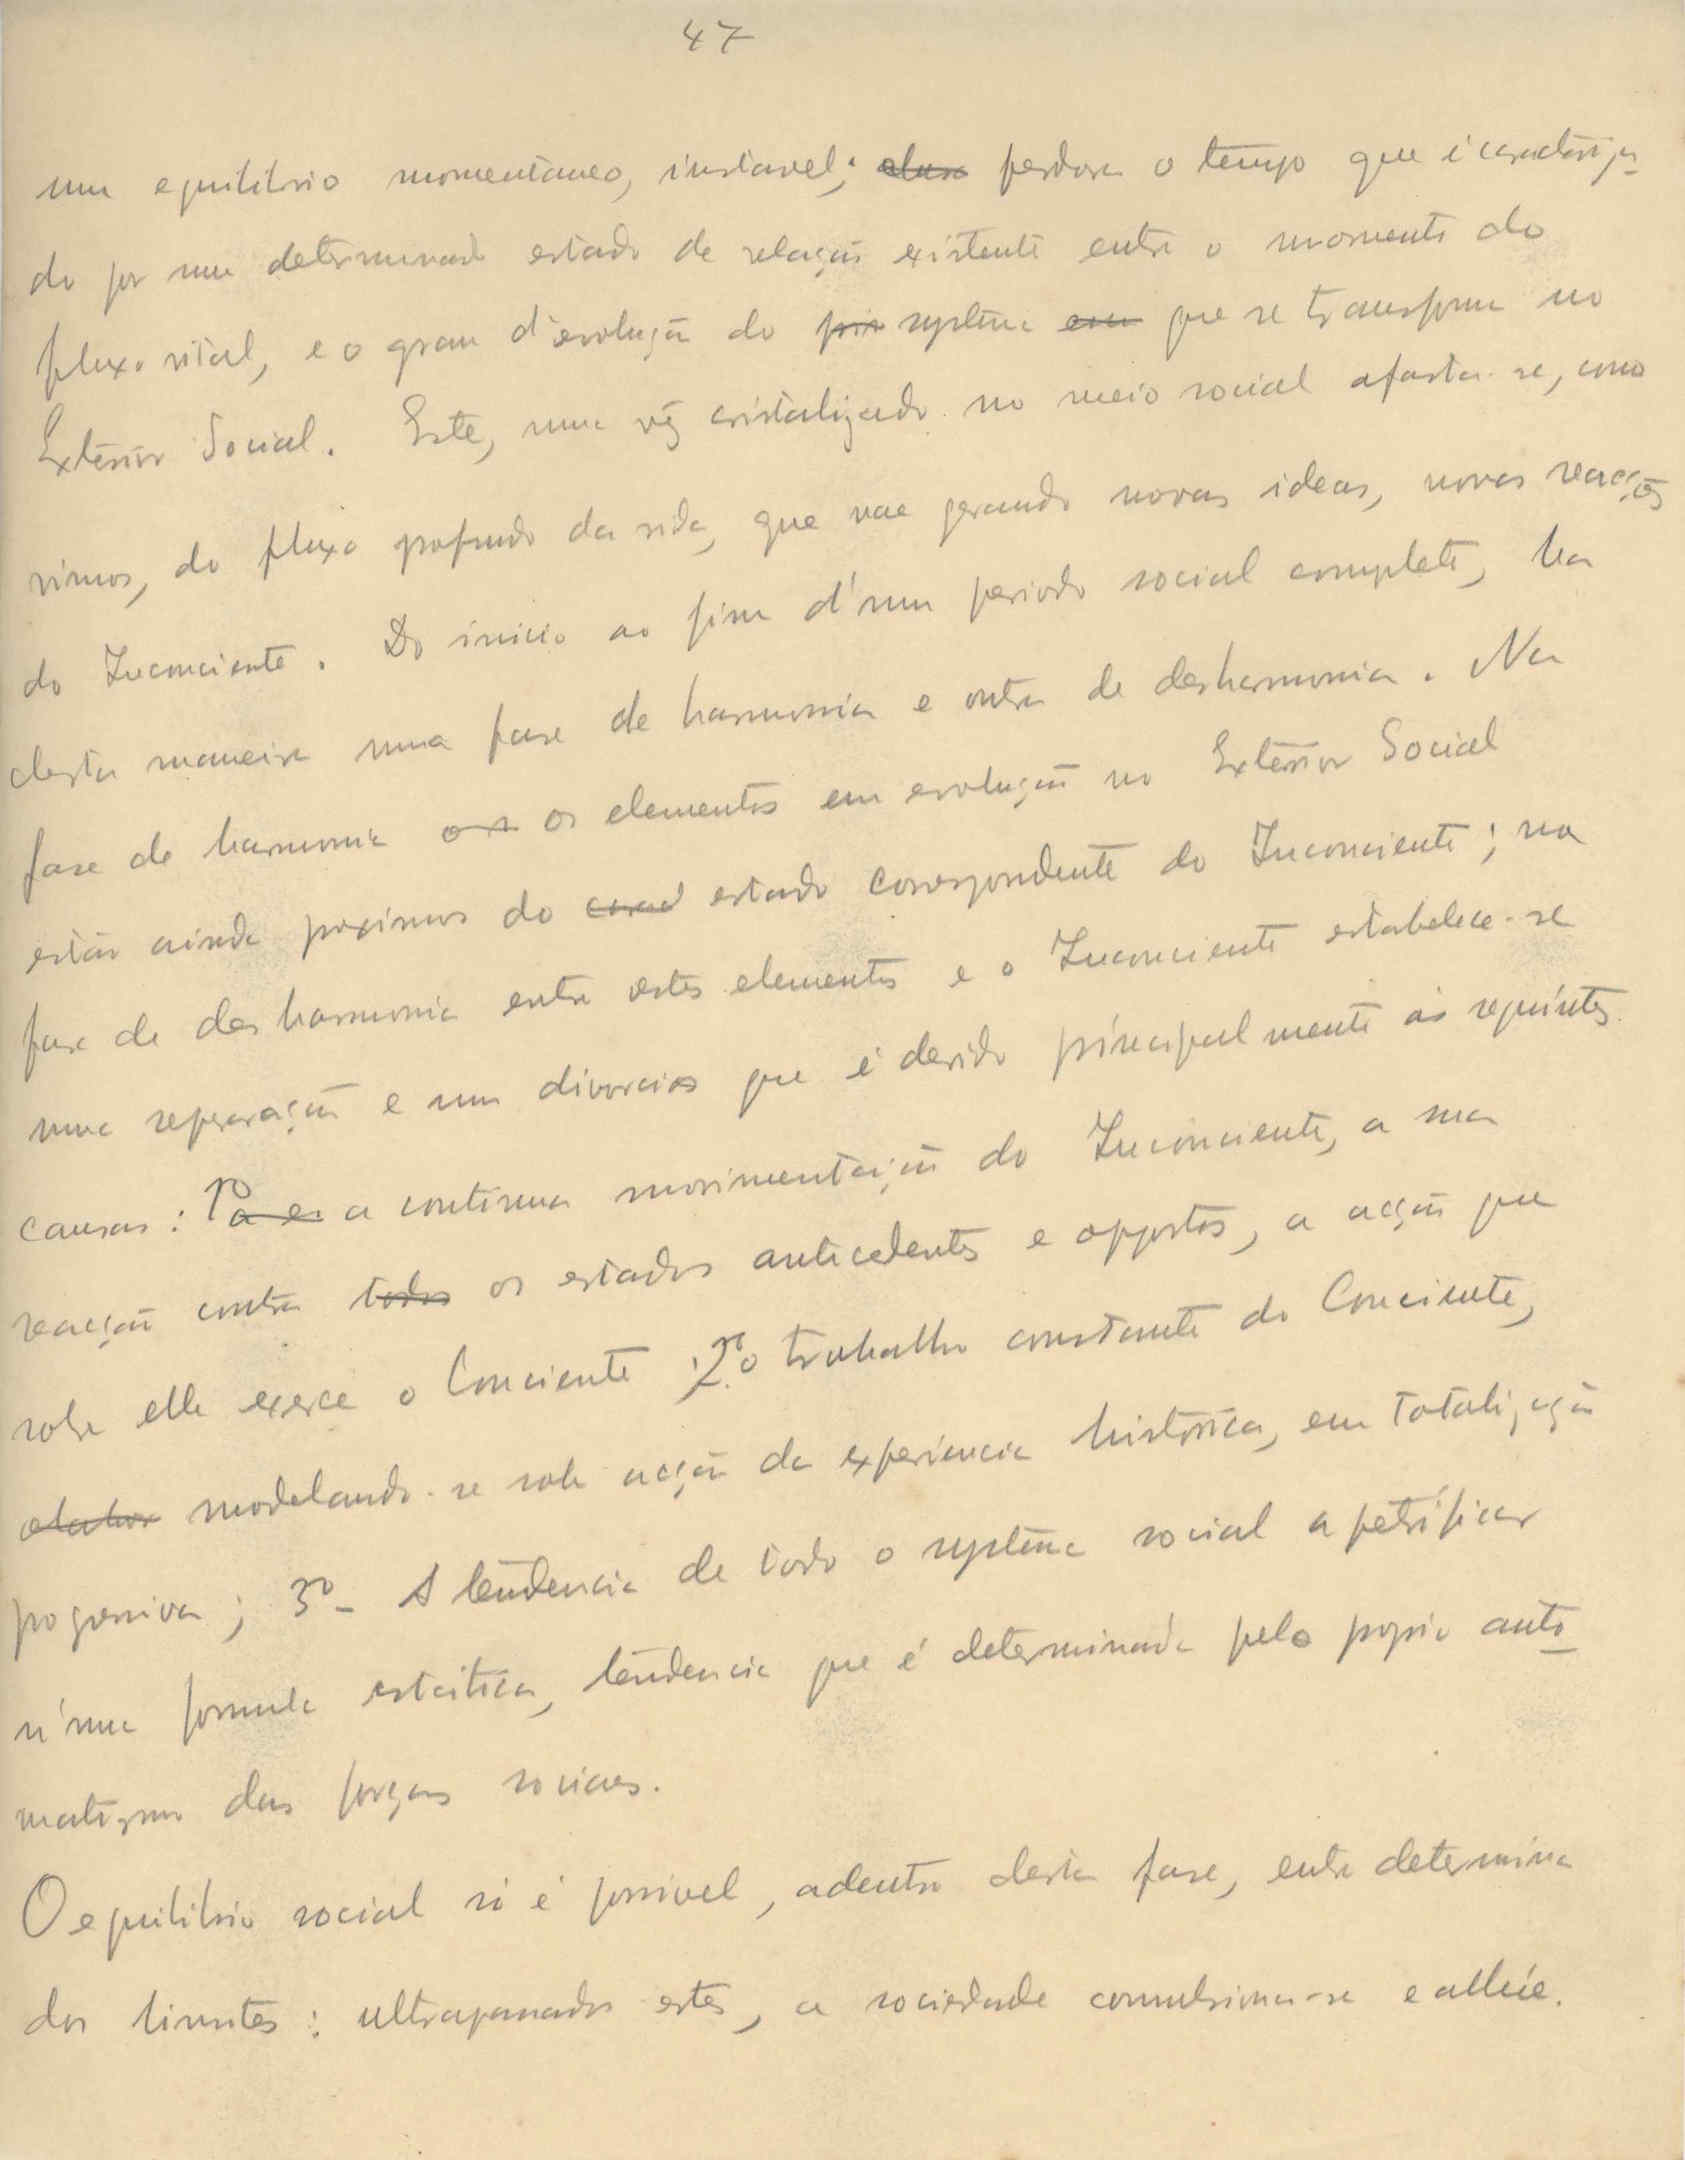 47
um equilibrio momentaneo, instavel; dura perdura o tempo que é caracteriza-
do por um determinado estado de relação existente entre o momento do
fluxo vital, e o grau d'evolução do systema em que se transforma no
Exterior Social. Este, uma vêz cristalizado no meio social afasta-se, como
vimos, do fluxo profundo da vida, que vae gerando novas ideas, novas reacções
do Inconciente. Do inicio ao fim d'um periodo social completo, ha
desta maneira uma fase de harmonia e outra de desharmonia. Na
fase de harmonia os elementos em evolução no Exterior Social
estão ainda proximos do estado correspondente do Inconciente; na
fase de desharmonia entre estes elementos e o Inconciente estabelece-se
uma separação e um divorcio que é devido principalmente ás seguintes
causas: 1º a continua movimentação do Inconciente, a sua
reacção contra todos os estados antecedentes e oppostos, a acção que
sobre elle exerce o Conciente; 2º o trabalho constante do Conciente,
modelando-se sob acção da experiencia historica, em totalização
progressiva; 3º - A tendencia de todo o systema social a petrificar
n'uma formula estatica, tendencia que é determinada pelo proprio auto-
matismo das forças sociaes.
O equilibrio social só é possivel, adentro desta fase, entre determina
dos limites: ultrapassados estes, a sociedade convulsiona-se e